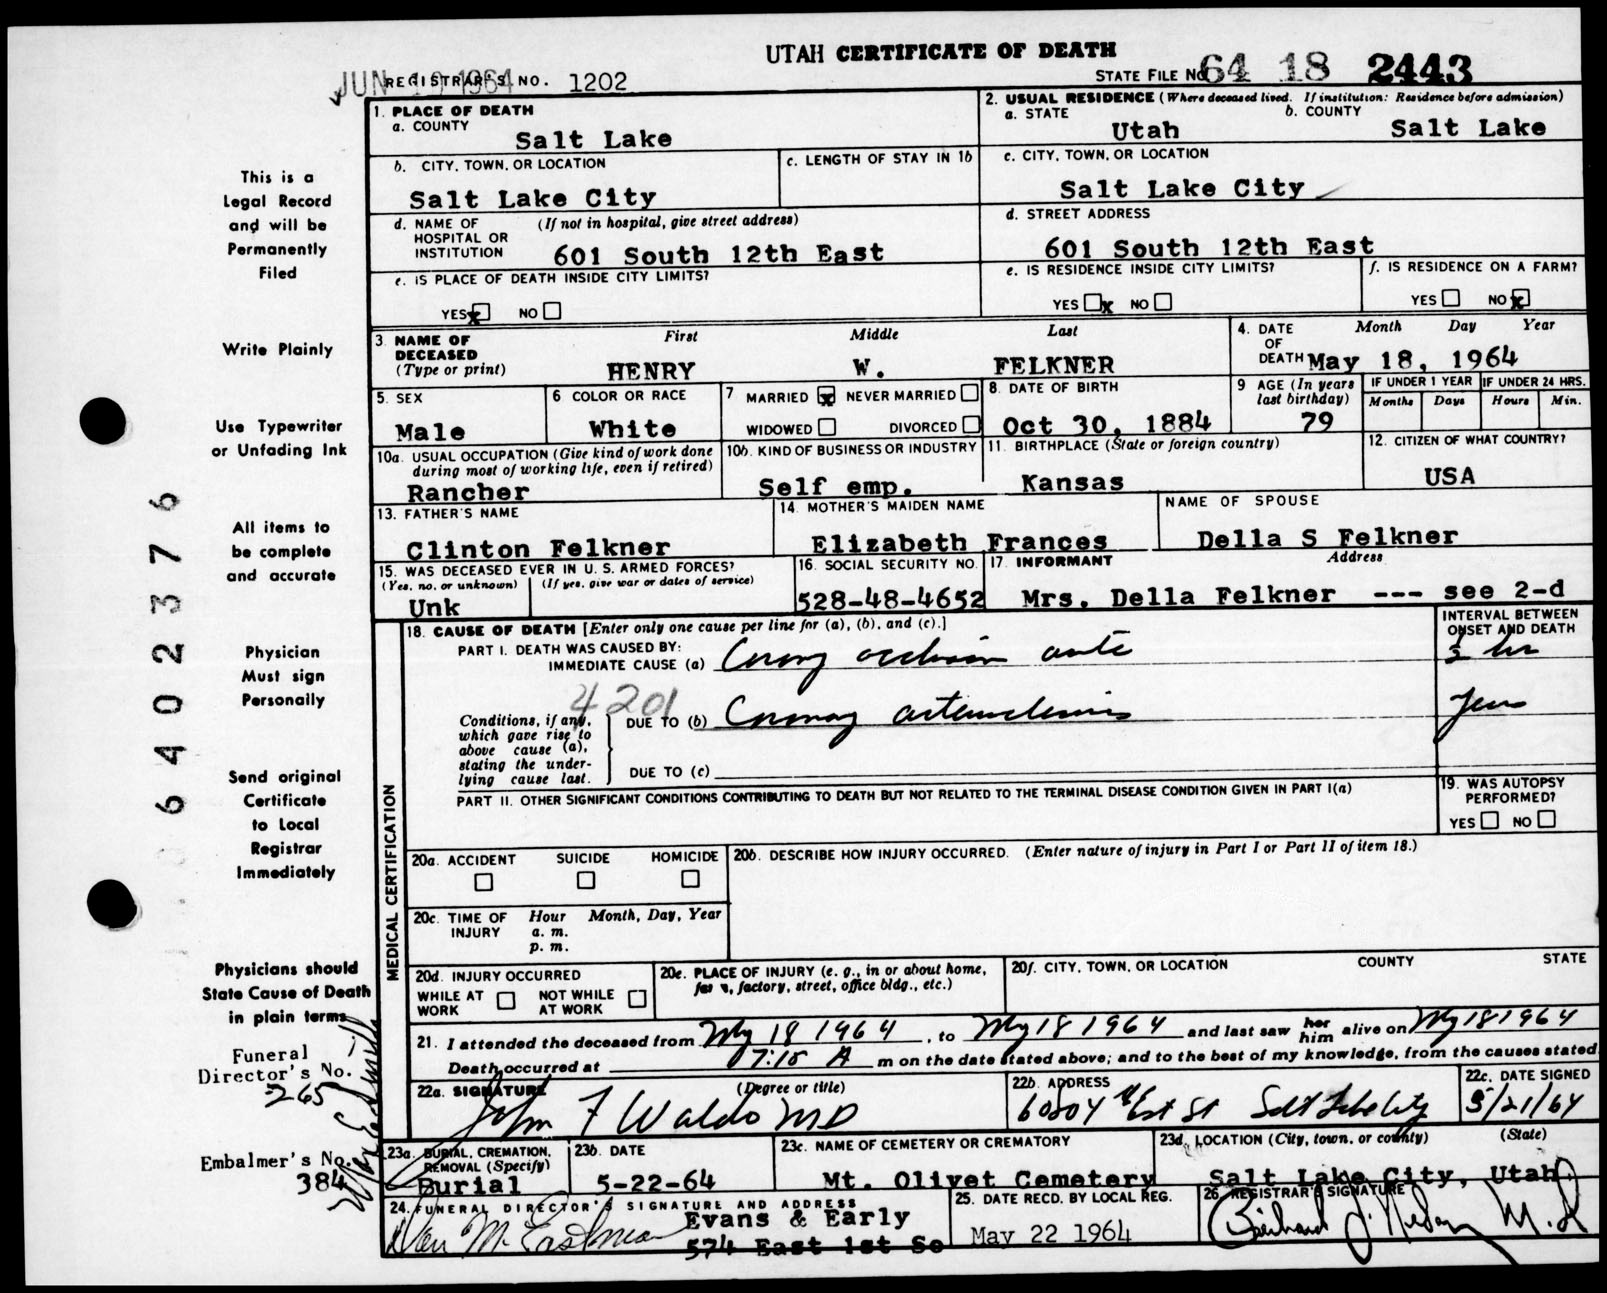 UTAH CERTIFICATE OF DEATH
JUN 1964 REGISTRAR'S NO. 1202
STATE FILE NO. 64 18 2443
1. PLACE OF DEATH
a. COUNTY
Salt Lake
2. USUAL RESIDENCE (Where deceased lived. If institution: Residence before admission)
a. STATE b. COUNTY
Utah Salt Lake
b. CITY, TOWN, OR LOCATION
Salt Lake City
c. LENGTH OF STAY IN 1b
c. CITY, TOWN, OR LOCATION
Salt Lake City
d. NAME OF HOSPITAL OR INSTITUTION (If not in hospital, give street address)
601 South 12th East
d. STREET ADDRESS
601 South 12th East
e. IS PLACE OF DEATH INSIDE CITY LIMITS?
YES x NO
e. IS RESIDENCE INSIDE CITY LIMITS?
YES x NO
f. IS RESIDENCE ON A FARM?
YES NO x
3. NAME OF DECEASED (Type or print)
First Middle Last
HENRY W. FELKNER
4. DATE OF DEATH Month Day Year
May 18, 1964
5. SEX
Male
6 COLOR OR RACE
White
7 MARRIED x NEVER MARRIED
WIDOWED DIVORCED
8. DATE OF BIRTH
Oct 30, 1884
9 AGE (In years last birthday)
79
IF UNDER 1 YEAR IF UNDER 24 HRS.
Months Days Hours Min.
10a. USUAL OCCUPATION (Give kind of work done during most of working life, even if retired)
Rancher
10b. KIND OF BUSINESS OR INDUSTRY
Self emp.
11. BIRTHPLACE (State or foreign country)
Kansas
12. CITIZEN OF WHAT COUNTRY?
USA
13. FATHER'S NAME
Clinton Felkner
14. MOTHER'S MAIDEN NAME
Elizabeth Frances
NAME OF SPOUSE
Della S Felkner
15. WAS DECEASED EVER IN U. S. ARMED FORCES?
(Yes, no, or unknown) (If yes, give war or dates of service)
Unk
16. SOCIAL SECURITY NO.
528-48-4652
17. INFORMANT Address
Mrs. Della Felkner --- see 2-d
MEDICAL CERTIFICATION
18. CAUSE OF DEATH [Enter only one cause per line for (a), (b), and (c).]
INTERVAL BETWEEN ONSET AND DEATH
PART I. DEATH WAS CAUSED BY:
IMMEDIATE CAUSE (a) Coronary occlusion acute
½ hr
4201
Conditions, if any, which gave rise to above cause (a), stating the under-lying cause last.
DUE TO (b) Coronary arteriosclerosis
Years
DUE TO (c)
PART II. OTHER SIGNIFICANT CONDITIONS CONTRIBUTING TO DEATH BUT NOT RELATED TO THE TERMINAL DISEASE CONDITION GIVEN IN PART I(a)
19. WAS AUTOPSY PERFORMED?
YES NO
20a. ACCIDENT SUICIDE HOMICIDE
20b. DESCRIBE HOW INJURY OCCURRED. (Enter nature of injury in Part I or Part II of item 18.)
20c. TIME OF INJURY Hour Month, Day, Year
a. m.
p. m.
20d. INJURY OCCURRED
WHILE AT WORK NOT WHILE AT WORK
20e. PLACE OF INJURY (e. g., in or about home, farm, factory, street, office bldg., etc.)
20f. CITY, TOWN, OR LOCATION COUNTY STATE
21. I attended the deceased from May 18 1964, to May 18 1964 and last saw her him alive on May 18 1964
Death occurred at 7:15 A m on the date stated above; and to the best of my knowledge, from the causes stated.
22a. SIGNATURE (Degree or title)
John F Waldo MD
22b. ADDRESS
Salt Lake City
22c. DATE SIGNED
5/21/64
23a. BURIAL, CREMATION, REMOVAL (Specify)
Burial
23b. DATE
5-22-64
23c. NAME OF CEMETERY OR CREMATORY
Mt. Olivet Cemetery
23d. LOCATION (City, town, or county) (State)
Salt Lake City, Utah
24. FUNERAL DIRECTOR'S SIGNATURE AND ADDRESS
M. Eastman
Evans & Early
574 East 1st So
25. DATE RECD. BY LOCAL REG.
May 22 1964
26. REGISTRAR'S SIGNATURE
M.D.
This is a
Legal Record
and will be
Permanently
Filed
Write Plainly
Use Typewriter
or Unfading Ink
All items to
be complete
and accurate
Physician
Must sign
Personally
Send original
Certificate
to Local
Registrar
Immediately
Physicians should
State Cause of Death
in plain terms
Funeral
Director's No.
265
Embalmer's No.
384
6402376